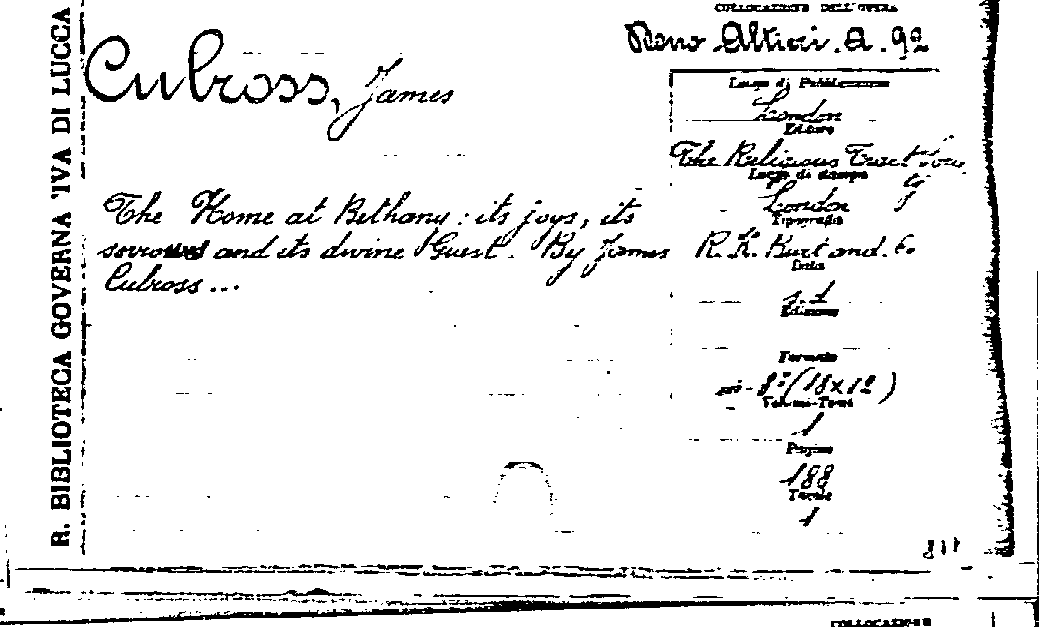 R. BIBLIOTECA GOVERNATIVA DI LUCCA
COLLOCAZIONE DELL'OPERA
Culross, James
The Home at Bethany: its joys, its
sorrows and its divine Guest. By James
Culross...
Luogo di Pubblicazione
London
Editore
The Religious Tract Society
Luogo di stampa
London
Tipografia
R. K. Burt and Co
Data
s.d
Edizione
Formato
in-8º (18x12)
Volume-Tomo
1
Pagine
188
Tavole
1
COLLOCAZIONE